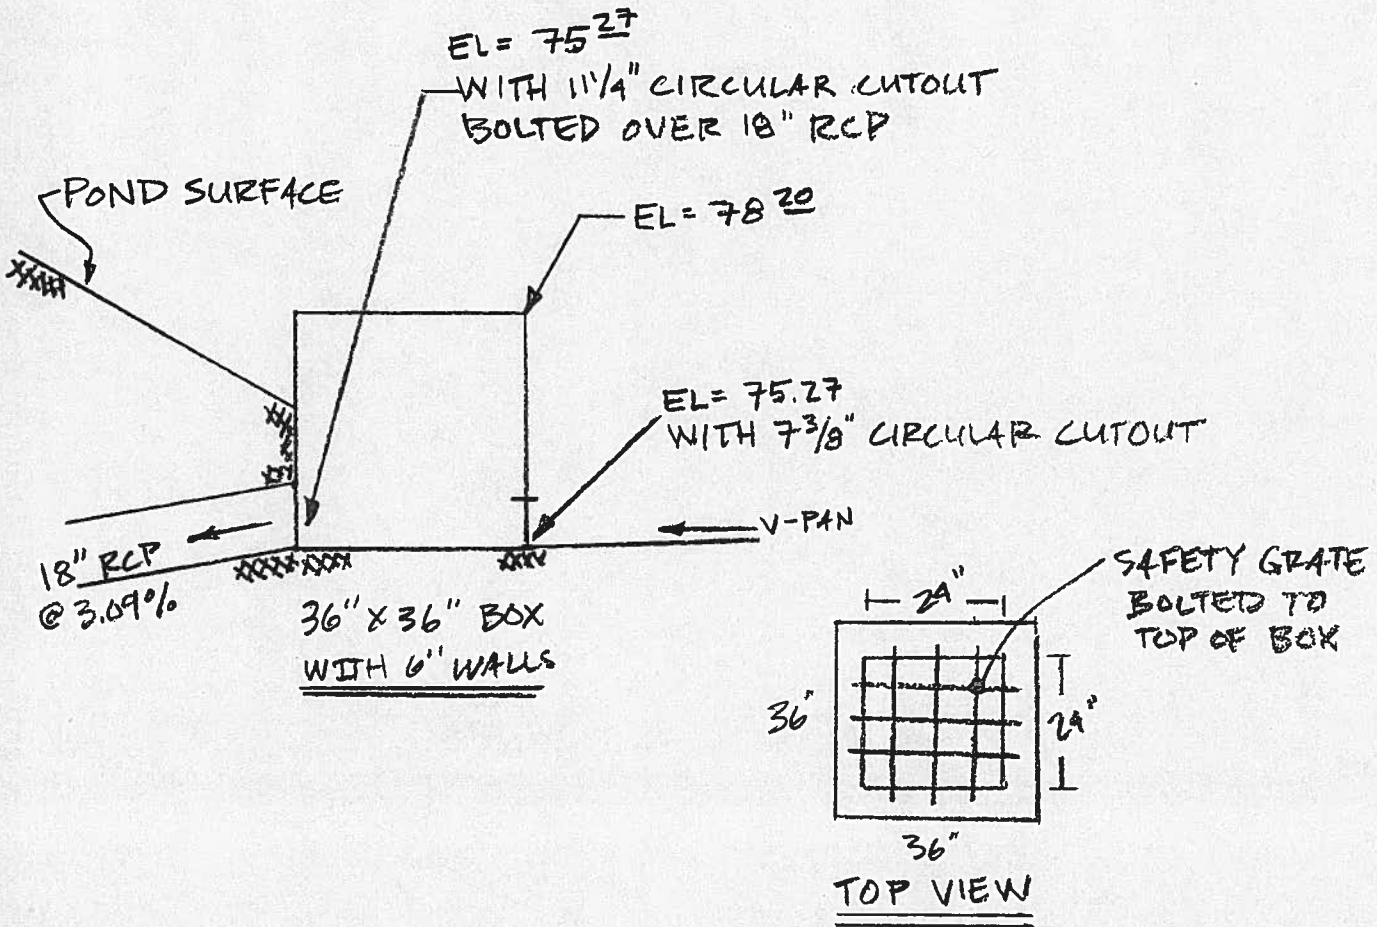 EL= 75 27
WITH 11 1/4" CIRCULAR CUTOUT
BOLTED OVER 18" RCP
POND SURFACE
EL= 78 20
EL= 75.27
WITH 7 3/8" CIRCULAR CUTOUT
V-PAN
18" RCP
@ 3.09%
36" X 36" BOX
WITH 6" WALLS
SAFETY GRATE
BOLTED TO
TOP OF BOX
24"
36"
24"
36"
TOP VIEW